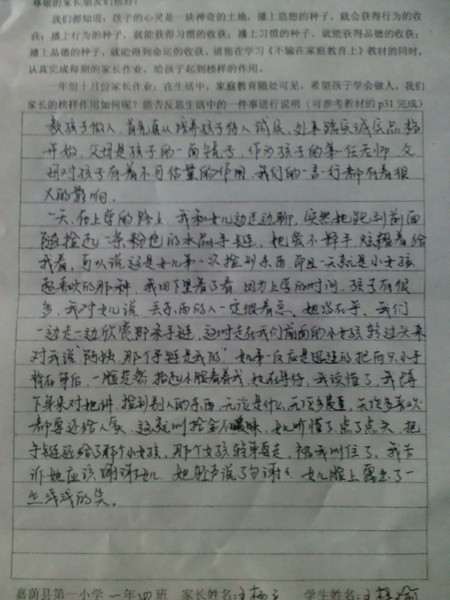 尊敬的家长朋友们您好:
我们都知道:孩子的心灵是一块神奇的土地,播上思想的种子,就会获得行为的收
获;播上行为的种子,就能获得习惯的收获;播上习惯的种子,就能获得品德的收获;
播上品德的种子,就能得到命运的收获。请您在学习《不输在家庭教育上》教材的同时,
认真完成每期的家长作业,给孩子起到榜样的作用。
一年级十月份家长作业:在生活中,家庭教育随处可见,希望孩子学会做人,我们
家长的榜样作用如何呢?能否反思生活中的一件事进行说明(可参考教材的 p31 完成)
教孩子做人,首先要从培养孩子待人诚实,处事踏实诚信品格
开始,父母是孩子的一面镜子,作为孩子的第一任老师,父
母对孩子有着不可估量的作用,我们的一言一行都有着很
大的影响。
一天,在上学的路上,我和女儿边走边聊,突然她跑到前面
随捡起一条粉色的水晶手链,她爱不释手
我看,可以说这是女儿第一次捡到东西,而且一看就是小女孩
超喜欢的那种,我四下里看了看,因为上学的时间,孩子有很
多,我对女儿说,丢东西的人一定很着急,她没在乎,我们
一边走一边欣赏那条手链,这时走在我们前面的小女孩转过头来
对我说"阿姨,那个手链是我的"她第一反应是迅速的把两只小手
背在身后,一脸茫然,抬起小脸看着我,她在等待,我读懂了,我蹲
下来来对她讲,捡到别人的东西,无论是什么,无论多贵重,无论多喜欢
都要还给人家,这就叫拾金不昧,女儿听懂了点了点头,把
手链还给了那个小女孩,那个女孩转身要走,被我叫住了,我告
诉她应该谢谢女儿,她轻声说了句谢谢,女儿脸上露出了一
丝浅浅的笑。
嘉荫县第一小学 一年四班 家长姓名: 学生姓名: